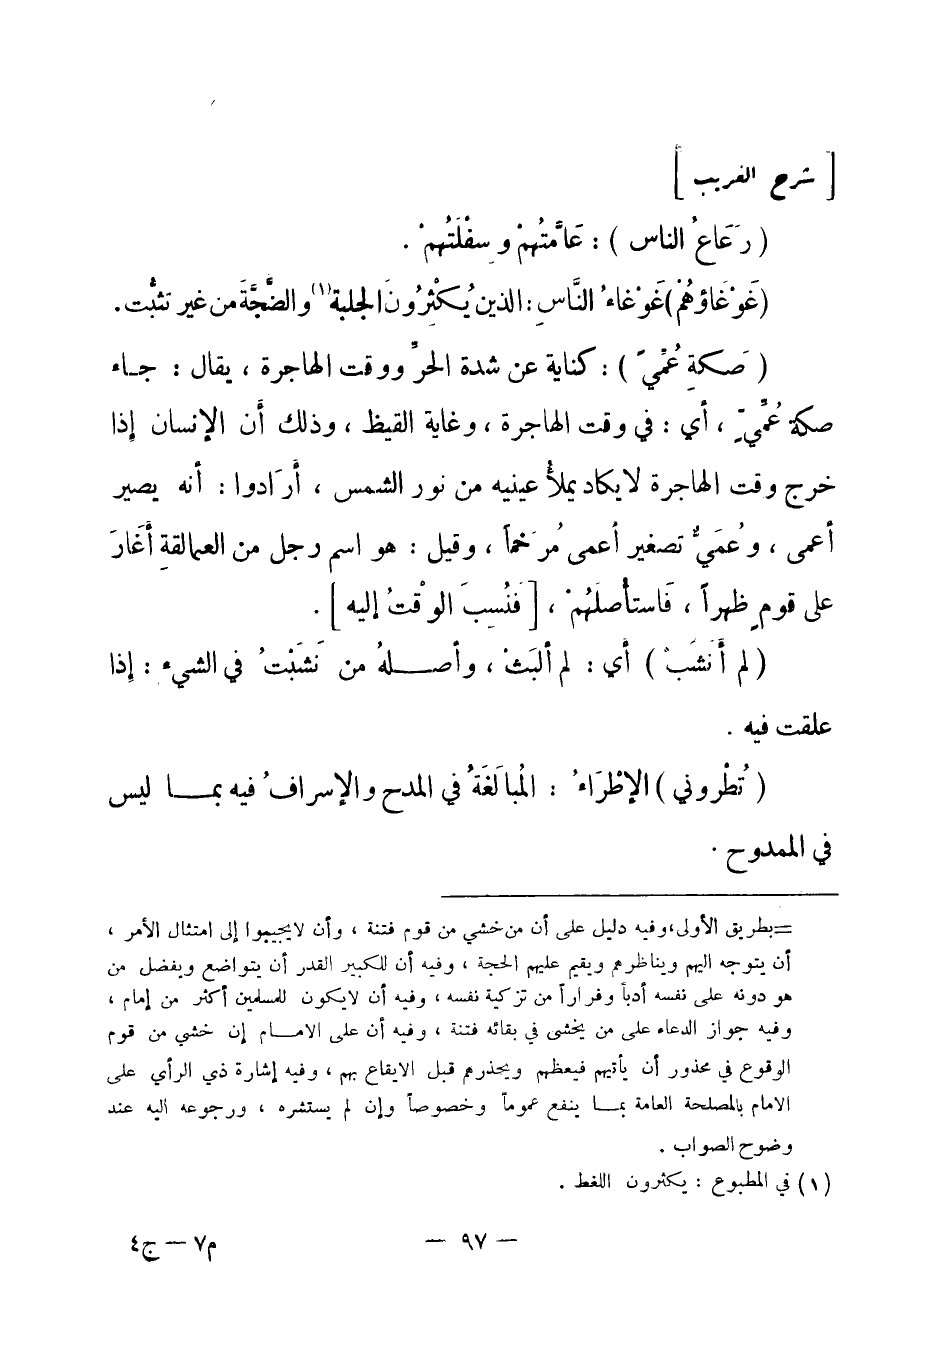 [ شرح الغريب ]
( رَعَاعُ الناس ) : عَامَّتُهُمْ وسِفْلَتُهُمْ .
(غَوْغَاؤهُمْ) غَوْغاءُ النَّاسِ : الذين يُكْثِرُونَ الجلبة (١) والضَّجَّةَ من غير تثبُّت .
( صَكةِ عُمْيّ ) : كناية عن شدة الحرِّ ووقت الهاجرة ، يقال : جـاء
صكة عُمِّيٍّ ، أي : في وقت الهاجرة ، وغاية القيظ ، وذلك أن الإنسان إذا
خرج وقت الهاجرة لا يكاد يملأُ عينيه من نور الشمس ، أرَادوا : أنه يصير
أعمى ، وعُمَيٌّ تصغير أعمى مُرَخماً ، وقيل : هو اسم رجل من العمالقةِ أغَارَ
على قومٍ ظهراً ، فَاستأصلَهُمْ ، [ فَنُسِبَ الوقْتُ إليه ] .
( لم أَنشَبْ ) أي : لم ألبَثْ ، وأصـــلهُ من نَشَبْتُ في الشيء : إذا
علقت فيه .
( تُطْروني ) الإطْرَاءُ : المُبالَغَةُ في المدح والإسرافُ فيه بمـــا ليس
في الممدوح .
=بطريق الأولى، وفيه دليل على أن من خشي من قوم فتنة ، وأن لا يجيبوا إلى امتثال الأمر ،
أن يتوجه اليهم ويناظرهم ويقيم عليهم الحجة ، وفيه أن للكبير القدر أن يتواضع ويفضل من
هو دونه على نفسه أدباً وفراراً من تزكية نفسه ، وفيه أن لا يكون للمسلمين أكثر من إمام ،
وفيه جواز الدعاء على من يخشى في بقائه فتنة ، وفيه أن على الامـــام إن خشي من قوم
الوقوع في محذور أن يأتيهم فيعظهم ويحذرهم قبل الايقاع بهم ، وفيه إشارة ذي الرأي على
الامام بالمصلحة العامة بمـــا ينفع عموماً وخصوصاً وإن لم يستشره ، ورجوعه اليه عند
وضوح الصواب .
(١) في المطبوع : يكثرون اللغط .
– ٩٧ –
م٧ – ج٤